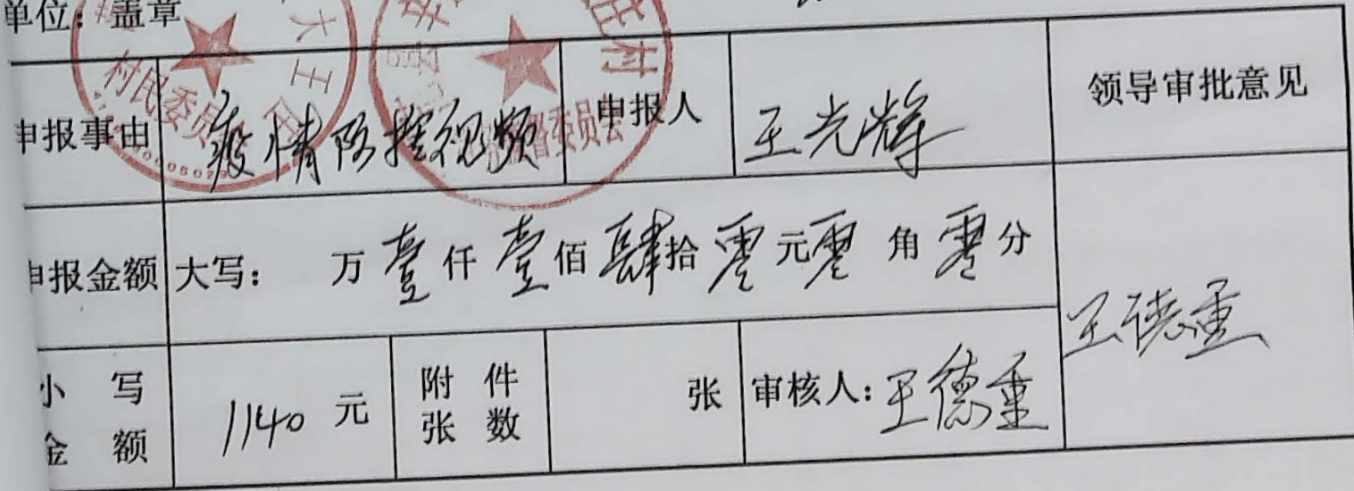 单位：盖章
大王
村民委员
驻村
督委员会
申报事由 疫情防控视频 申报人 王光辉 领导审批意见
申报金额 大写： 万壹仟壹佰肆拾零元零角零分
王德重
小写金额 1140元 附件张数 张 审核人：王德重